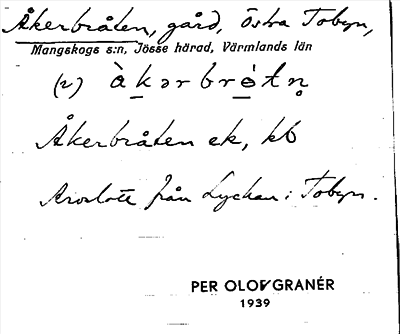 Åkerbråten, gård, Östra Tobyn,
Mangskogs s:n, Jösse härad, Värmlands län
(2) àkərbrótn̥
Åkerbråten ek, kb
från Lyckan i Tobyn.
PER OLOF GRANÉR
1939